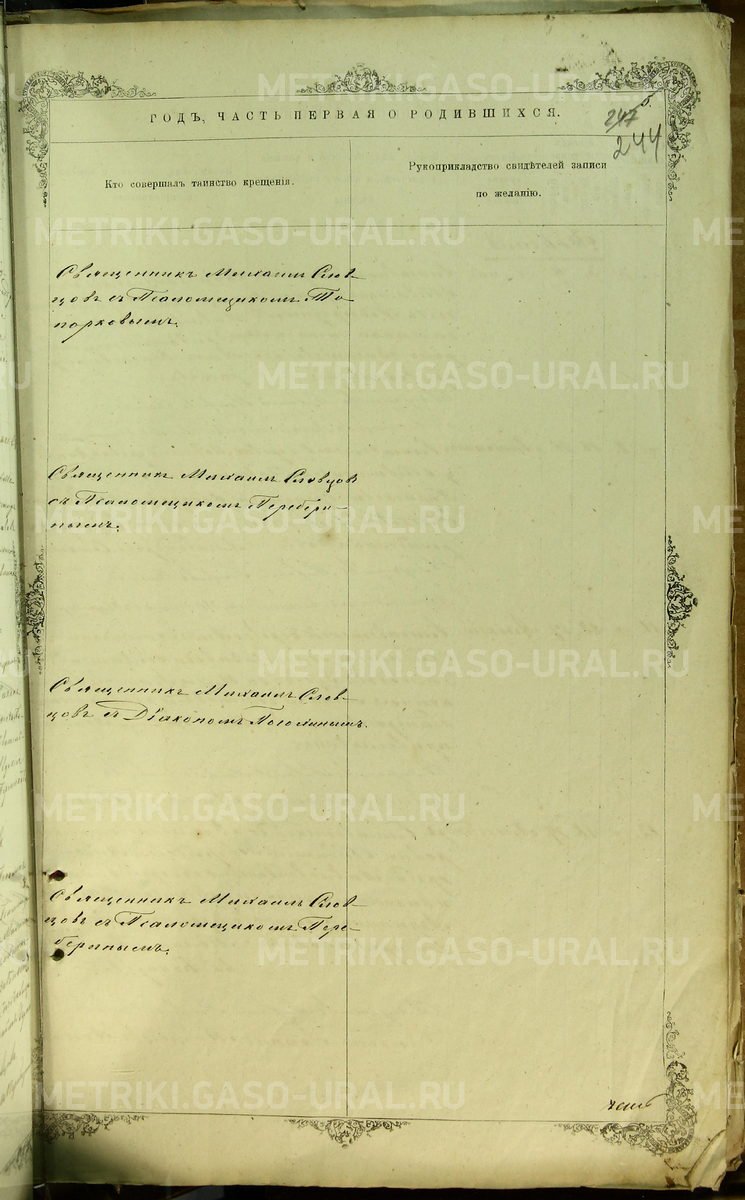 ГОДЪ, ЧАСТЬ ПЕРВАЯ О РОДИВШИХСЯ.
247
244
Кто совершалъ таинство крещенія.
Рукоприкладство свидѣтелей записи
по желанію.
Священникъ Михаилъ Слов-
цовъ съ Псаломщикомъ То-
порковымъ.
Священникъ Михаилъ Словцовъ
съ Псаломщикомъ Перебери-
нымъ.
Священникъ Михаилъ Слов-
цовъ съ Діакономъ
Священникъ Михаилъ Слов-
цовъ съ Псаломщикомъ Пере-
беринымъ.
METRIKI.GASO-URAL.RU